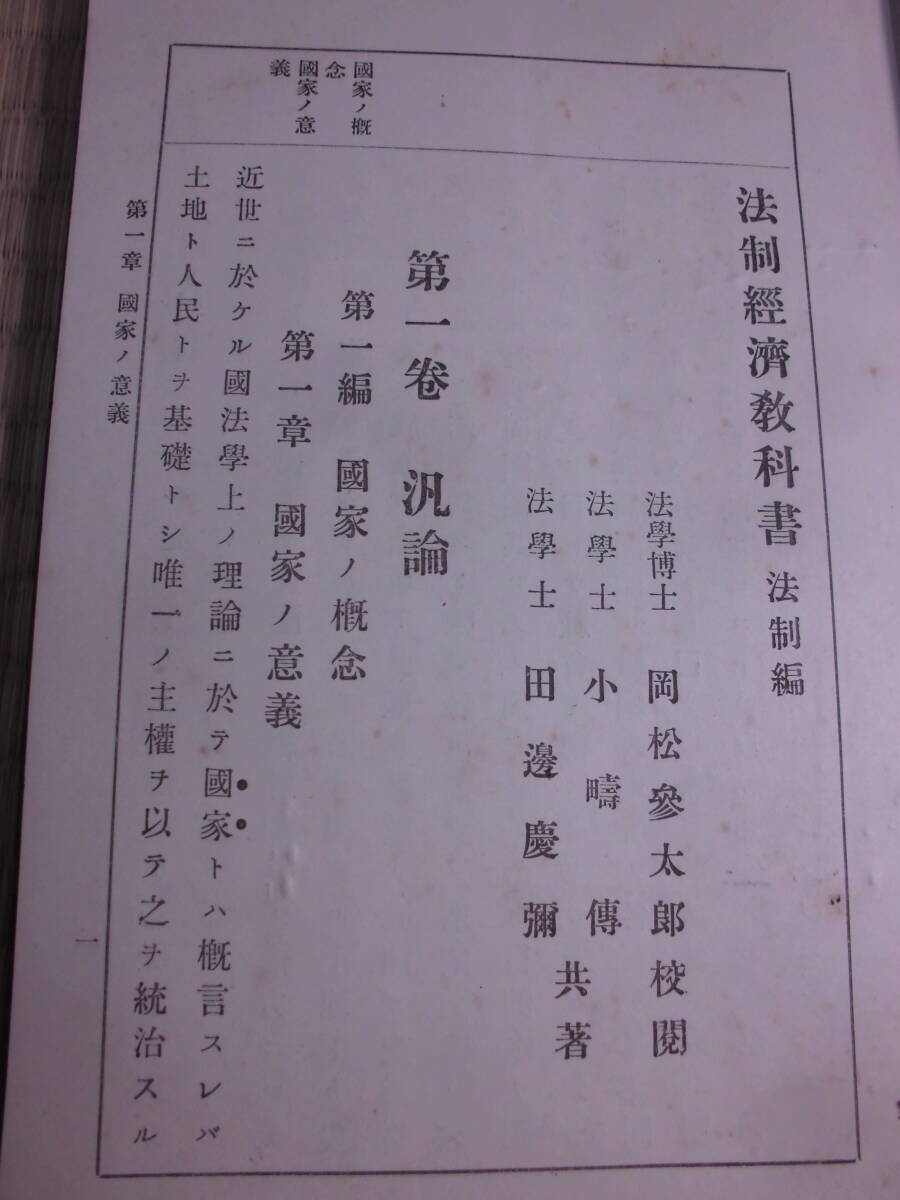 法制經濟教科書 法制編
法學博士 岡松參太郎校閱
法學士 小疇傳
法學士 田邊慶彌
共著
第一卷 汎論
第一編 國家ノ概念
第一章 國家ノ意義
國家ノ概
念
國家ノ意
義
近世ニ於ケル國法學上ノ理論ニ於テ國家トハ概言スレバ
土地ト人民トヲ基礎トシ唯一ノ主權ヲ以テ之ヲ統治スル
第一章 國家ノ意義
一